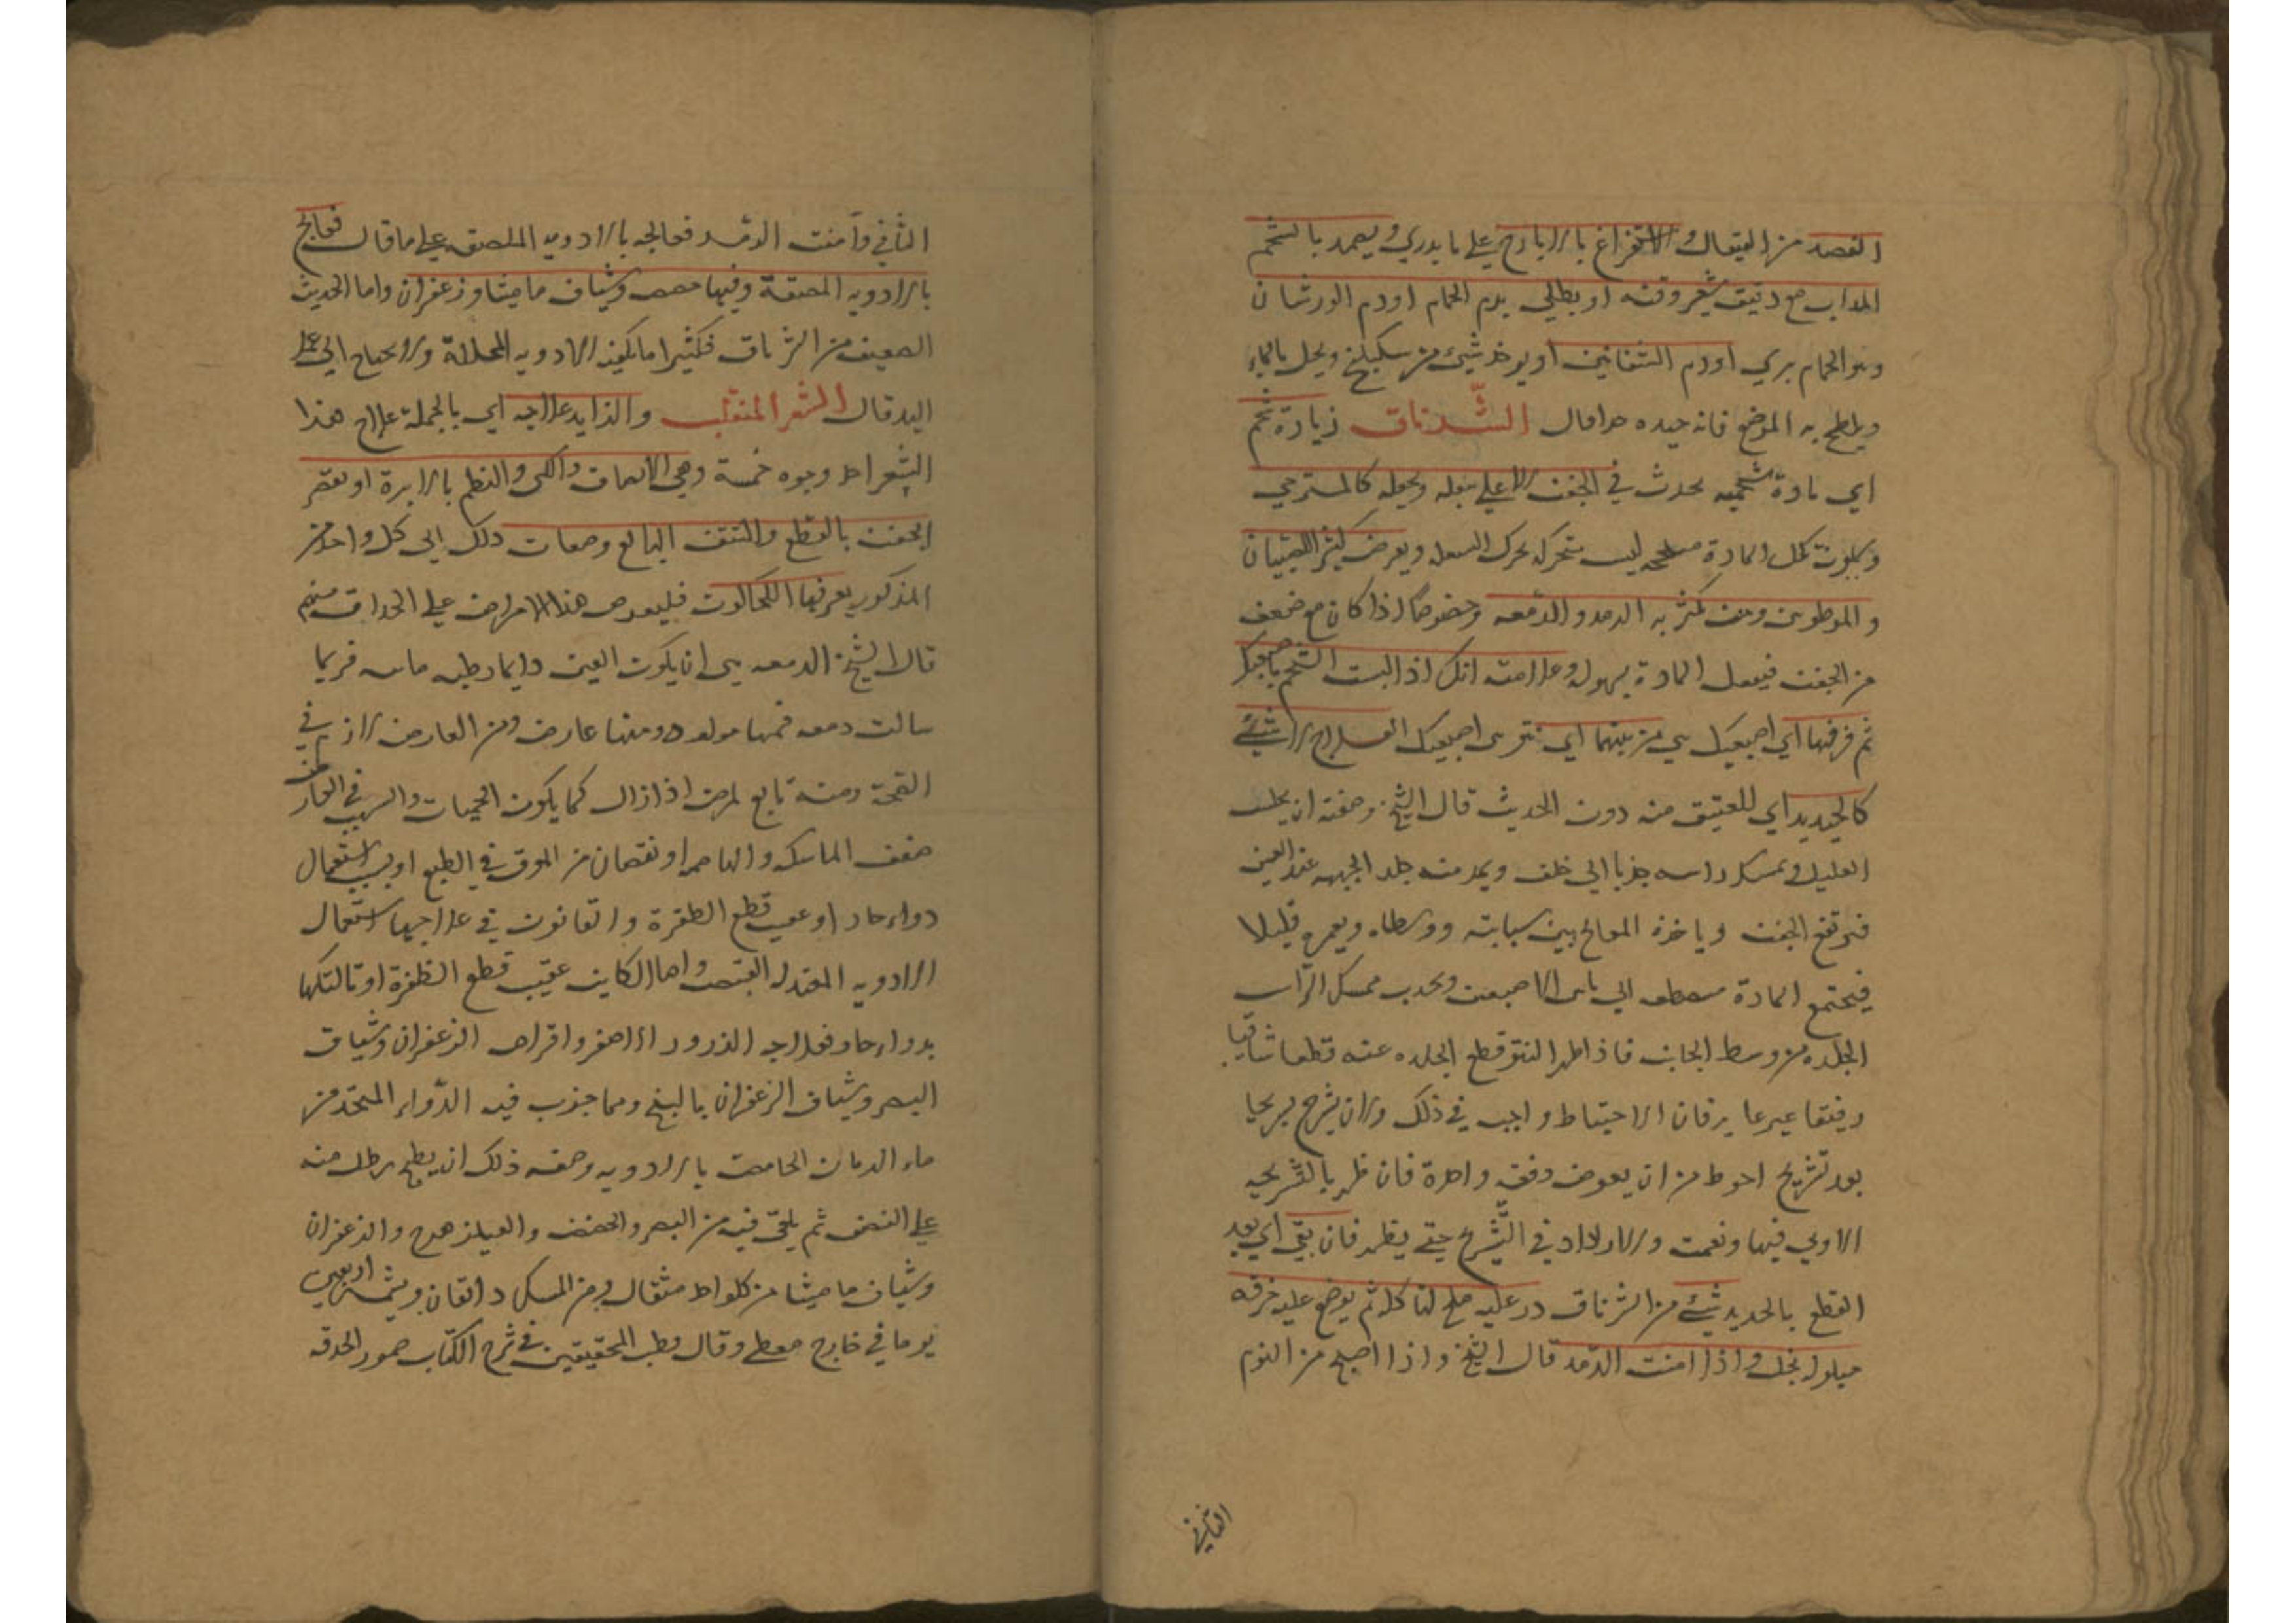 الفصد من القيفال والاستفراغ بالايارج على ما يدري ويضمد بالشحم
المذاب مع دقيق شعير وقنه او يطلي بدم الحمام او دم الورشان
وهو الحمام بري او دم الشفانين او يوخذ شيء من سكبينج ويحل بالماء
ويلطخ به الموضع فانه جيده قال الشرناق زيادة شحم
اي مادة شحميه يحدث في الجفن الاعلى يثقله ويجعله كالمسترخي
ويكون تلك المادة ليس متحركه ويعرض كثيرا للصبيان
والمرطوبين ومن يكثر به الرمد والدمعه وخصوصا اذا كان مع ضعف
من الجفن فيقبل المادة بسهوله وعلامته انك اذا الشحم باصبعيك
ثم فرقتها اي اصبعيك من بينهما اي اصبعيك العلاج لا شيء
كالحديد اي للعتيق منه دون الحديث قال الشيخ وصفته ان يجلس
العليل ويمسك راسه جذبا الى خلف ويمد منه جلد الجبهه عند العين
فيرتفع الجفن وياخذه المعالج بين سبابته ووسطاه ويغمره قليلا
فيجتمع المادة الى ما بين الاصبعين ويجذب ممسك الراس
الجلده من وسط الحاجب فاذا ظهر النتو قطع الجلده عنه قطعا شافيا
رفيقا غير غاير فان الاحتياط واجب في ذلك ولان يشرح تشريحا
بعد تشريح احوط من ان يغوص دفعه واحدة فان ظهر بالتشريحه
الاولي فبها ونعمت والا زاد في التشريح حتي يظهر فان بقي اي بعد
القطع بالحديد شيء من الشرناق ذر عليه ملح لتاكله ثم يوضع عليه خرقه
مبلوله بخل واذا امنت الرمد قال الشيخ واذا اصبح من اليوم
الثاني
الثاني وآمنت الرمد فعالجه بالادويه الملصقه على ما قال فعالج
بالادويه الملصقة وفيها حضض وشياف ماميثا وزعفران واما الحديث
الضعيف من الشرناق فكثيرا ما يكفيه الادويه المحللة ولا يحتاج الى عمل
اليد قال الشعر المنقلب والزايد علاجه اي بالجملة علاج هذا
الشعر احد وجوه خمسة وهي الالصاق والكى والنظم بالابرة او تقصير
الجفن بالقطع والنتف المانع وصفات ذلك اي كل واحد من
المذكور يعرفها الكحالون فليعرض هذا الامراض على الحذاق منهم
قال الشيخ الدمعه هي ان يكون العين دايما رطبه مائيه فربما
سالت دمعه فمنها مولود ومنها عارض ومن العارض لازم في
الصحة ومنه تابع لمرض اذا زال كما يكون في الحميات والسبب في العارض
ضعف الماسكه والهاضمه او نقصان من الموق في الطبع او بسبب استعمال
دواء حاد او عقيب قطع الظفرة والقانون في علاجها استعمال
الادويه المعتدله القبض واما الكاين عقيب قطع الظفرة او تاكلها
بدواء حاد فعلاجه الذرور الاصفر واقراص الزعفران وشياف
الصبر وشياف الزعفران بالبنج ومما جرب فيه الدواء المتخذ من
ماء الرمان الحامض بالادويه وصفه ذلك ان يطبخ رطل منه
على النصف ثم يلقي فيه من الصبر والحضض والفيلزهرج والزعفران
وشياف ماميثا من كل واحد مثقال ومن المسك دانقان ويشمس اربعين
يوما في زجاج مغطي وقال قطب المحققين في شرح الكتاب ضمور الحدقه